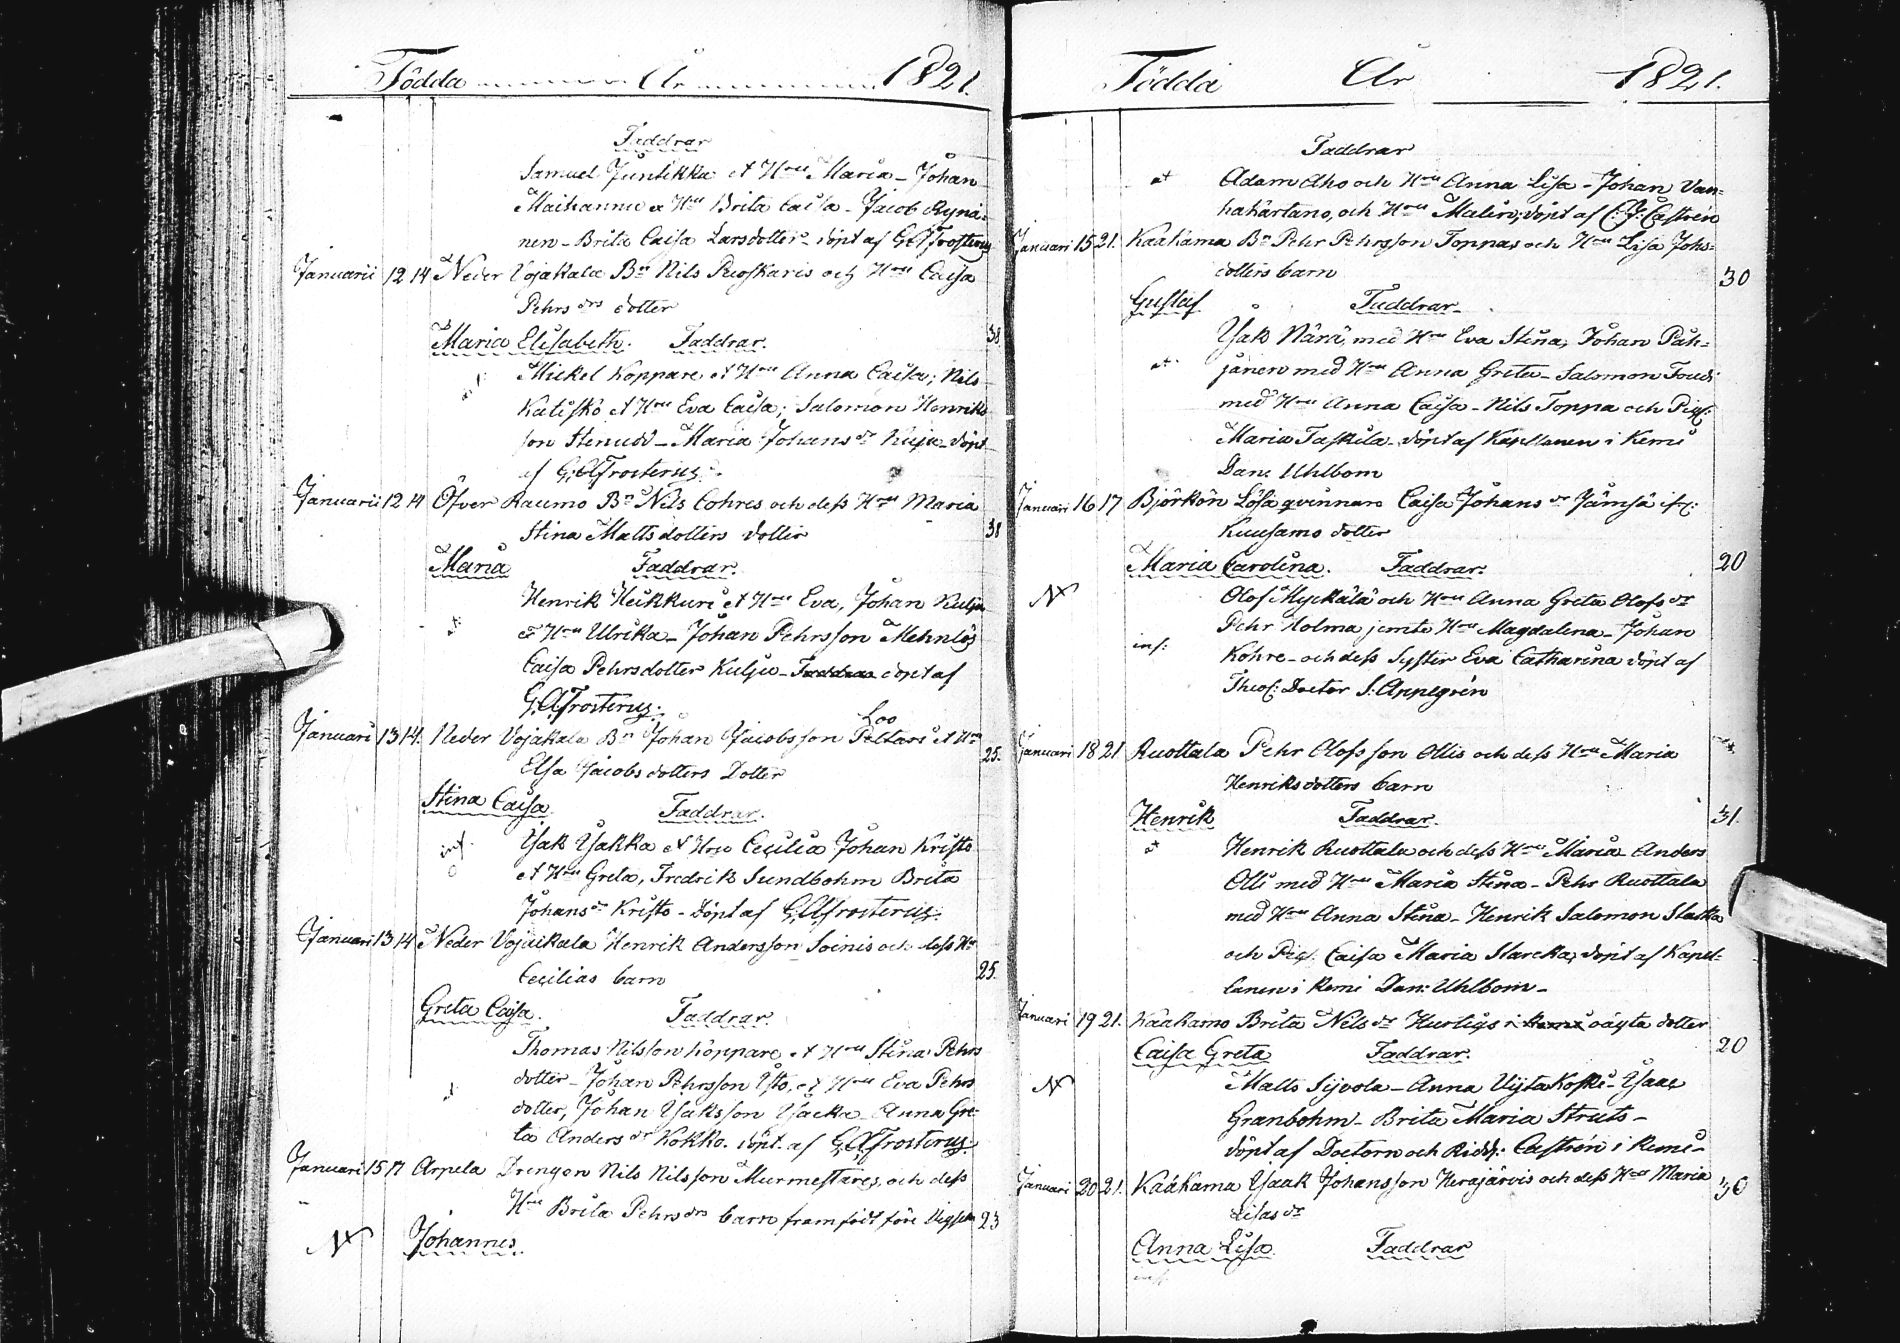 Födda År 1821.
Faddrar
Samuel Juntikka et Hru Maria - Johan
Maihannu et Hru Brita Caisa - Jacob Rynä-
nen - Brita Caisa Larsdotter - döpt af G.A. Frosterus
Januarii 12 14 Neder Vojakala Bn Nils Ruoskaris och Hrus Caisa
Pehrs drs dotter
Maria Elisabeth. Faddrar. 38
Mickel Koppare et Hru Anna Caisa; Nils
Kaliskö et Hru Eva Caisa; Salomon Henriks
son Stenudd - Maria Johans dr Kuja - döpt
af G.A. Frosterus.
Januarii 12 14 Öfver Raumo Bn Nils Cohres och dess Hru Maria
Stina Matts dotters dotter 38
Maria Faddrar.
Henrik Heikkuri et Hru Eva, Johan Kulju
et Hru Ulrika - Johan Pehrsson Mehnlös
Caisa Pehrsdotter Kulju - Faddrar döpt af
G.A. Frosterus.
Loo
Januari 13 14. Neder Vojakala Bn Johan Jacobsson Peltars et Hru
Elsa Jacobs dotters Dotter 25.
Stina Caisa Faddrar.
inf. Isak Isakka et Hru Cecilia Johan Kristo
et Hru Greta, Fredrik Sundbohm Brita
Johans dr Kristo - Döpt af G.A. Frosterus.
Januari 13 14 Neder Vojaikala Henrik Andersson Soinis och dess Hru
Cecilias barn 25.
Greta Caisa. Faddrar.
Thomas Nilsson Koppare et Hru Stina Pehrs
dotter - Johan Pehrsson Isto, et Hru Eva Pehrs
dotter, Johan Isaksson Isacka Anna Gre-
ta Anders dr Kokko. döpt. af G.A. Frosterus.
Januari 15 17 Arpela Drengen Nils Nilsson Murmestares och dess
Hru Brita Pehrs drs barn framfödt före Vigseln 23
Johannes.
Födda År 1821.
Faddrar
at Adam Aho och Hru Anna Lisa - Johan Van-
hahärtano, och Hru Malin; döpt af C: J: Castrén
Januari 15 21. Kaakama Bn Pehr Pehrsson Toppas och Hru Lisa Johs-
dotters barn 30
Gustaf Faddrar.
Isak Närä, med Hru Eva Stina, Johan Päh-
at jänen med Hru Anna Greta - Salomon Foudi
med Hru Anna Caisa - Nils Toppa och Pig:
Maria Taskila - döpt af Kapllanen i Kemi
Dan: Uhlbom
Januari 16 17 Björkön Lösa qvinnans Caisa Johans dr Jämsä ifr:
Kuusamo dotter
Maria Carolina. Faddrar. 20
Olof Myckälä och Hru Anna Greta Olofs dr
Pehr Holma jemte Hru Magdalena - Johan
inf: Kohre - och dess Syster Eva Catharina döpt af
Theol: Doctor S: Appelgrén
Januari 18 21 Ruottala Pehr Olofsson Ollis och dess Hru Maria
Henriksdotters barn
Henrik Faddrar. 31.
at Henrik Ruottala och dess Hru Maria Anders
Olli med Hru Maria Stina - Pehr Ruottala
med Hru Anna Stina - Henrik Salomon Slacka
och Pig: Caisa Maria Slarcka, döpt af Kapel-
lanen i Kemi Dan: Uhlbom -
Januari 19 21. Kaakamo Brita Nils dr Hurtigs i Kemi oägta dotter
Caisa Greta Faddrar. 20
Matts Sijvola - Anna Vijtakoski - Isaac
Granbohm - Brita Maria Struts -
döpt af Doctorn och Ridd: Castrén i Kemi -
Januari 20 21. Kaakama Isaak Johansson Herajärvis och dess Hru Maria
Lisas dr 30
Anna Lisa Faddrar
inf.